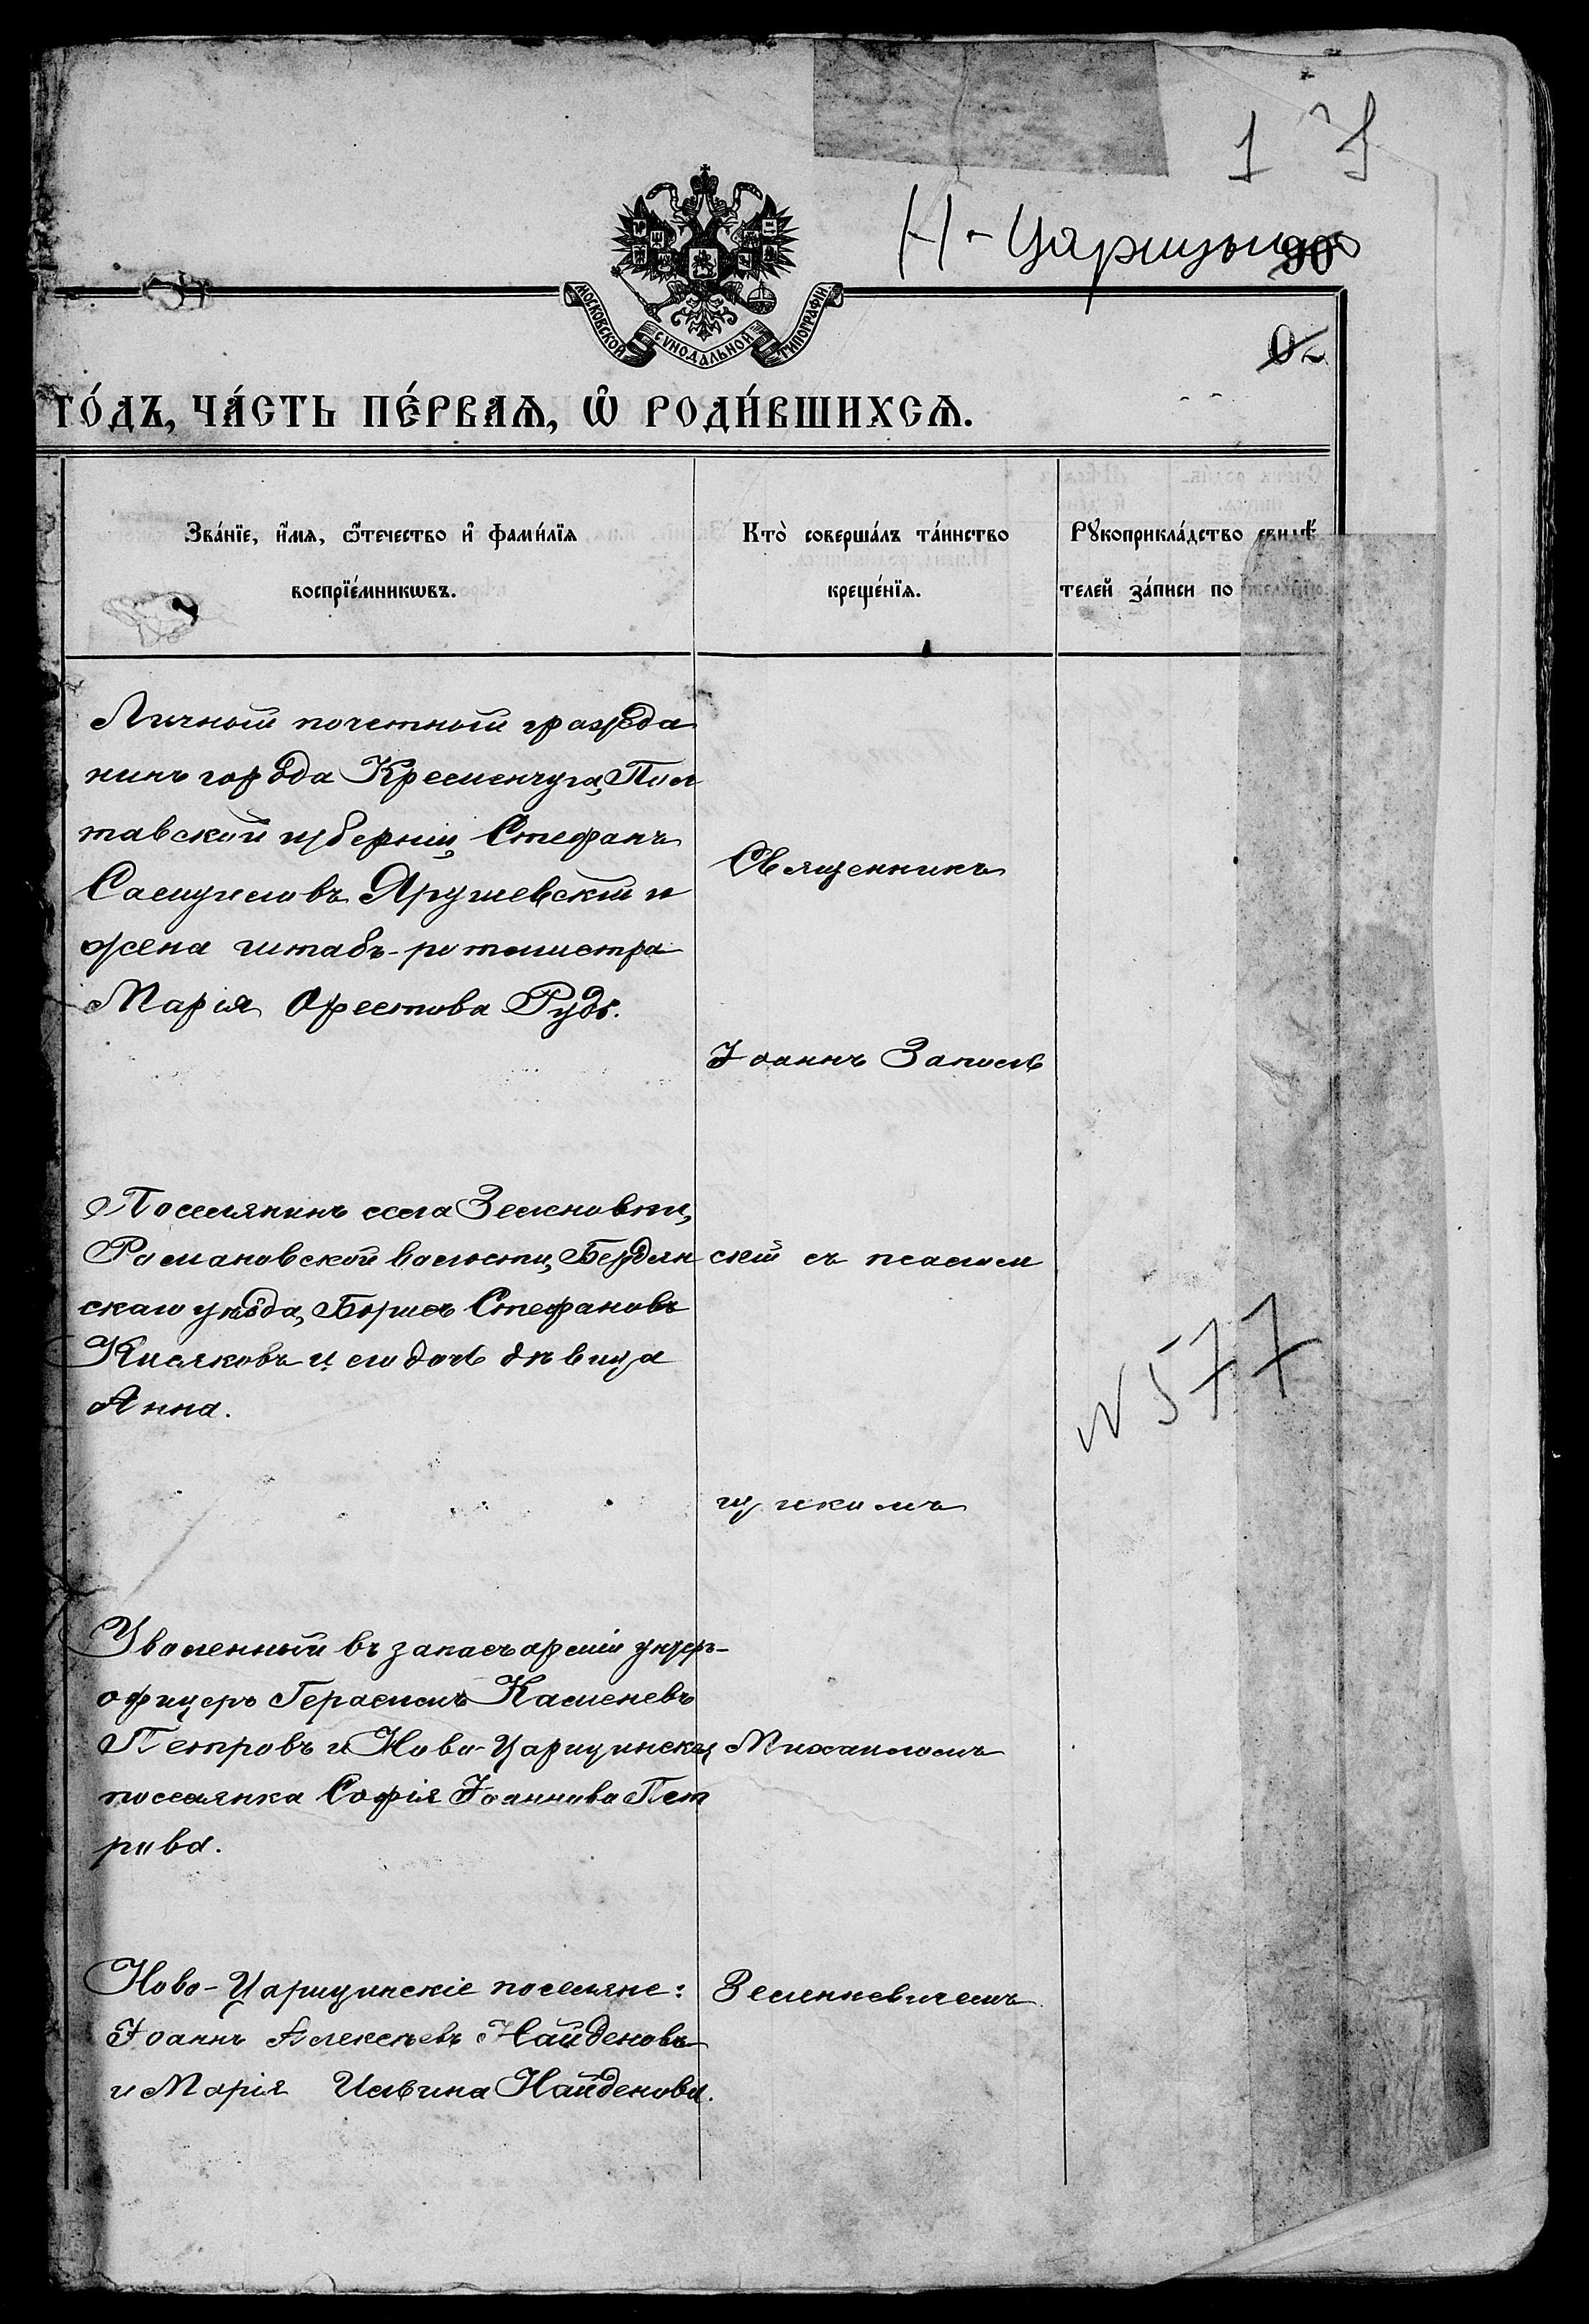 1
Н-Царицыно
90
МОСКОВСКОЙ СѴНОДАЛЬНОЙ ТИПОГРАФІИ
ГО́ДЪ, ЧА́СТЬ ПЕ́РВАѦ, Ѡ҆ РОДИ́ВШИХСѦ.
Зва́нїе, и҆́мѧ, ѻ҆те́чество и҆ фами́лїѧ
воспрїе́мникѡвъ.
Кто̀ соверша́лъ та́инство
креще́нїѧ.
Рꙋкоприкла́дство свидѣ́
телей за́писи по
Личной почетной гражда
нинъ города Кременчуга, Пол
тавской губерніи, Стефанъ
Самуиловъ Ярушевскій и
жена штабъ-ротмистра
Марія Орестова Рудь.
Священникъ
Іоаннъ Заполь
Поселянинъ села Зеленовки,
Романовской волости, Бердян
скаго уѣзда, Борисъ Стефановъ
Кисяковъ и его дочь дѣвица
Анна.
скій съ псалом
щикомъ
N 577
Уволенный въ запасъ арміи унтеръ-
офицеръ Герасимъ Каменевъ
Петровъ и Ново-Царицинская
поселянка Софія Іоаннова Пет
рова.
Михаиломъ
Ново-Царицинскіе поселяне:
Іоаннъ Алексѣевъ Найденовъ
и Марія Ильина Найденова.
Зеленкевичемъ